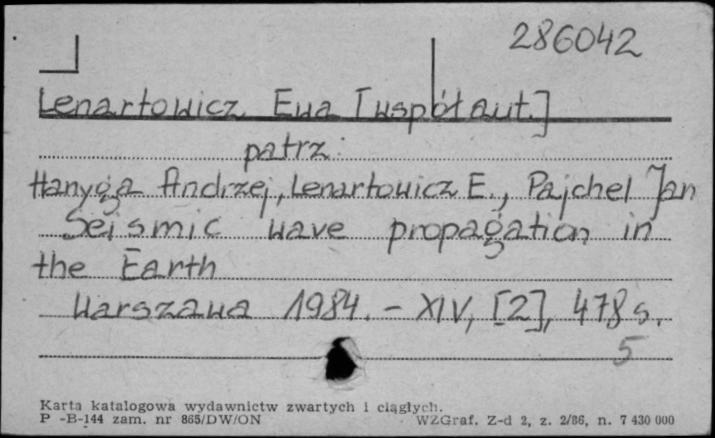 286042
Lenartowicz Ewa [współaut.]
patrz:
Hanyga Andrzej, Lenartowicz E., Pajchel Jan
Seismic wave propagation in
the Earth
Warszawa 1984. - XIV, [2], 478 s.
5
Karta katalogowa wydawnictw zwartych i ciągłych.
P -B-144 zam. nr 865/DW/ON WZGraf. Z-d 2, z. 2/86, n. 7 430 000